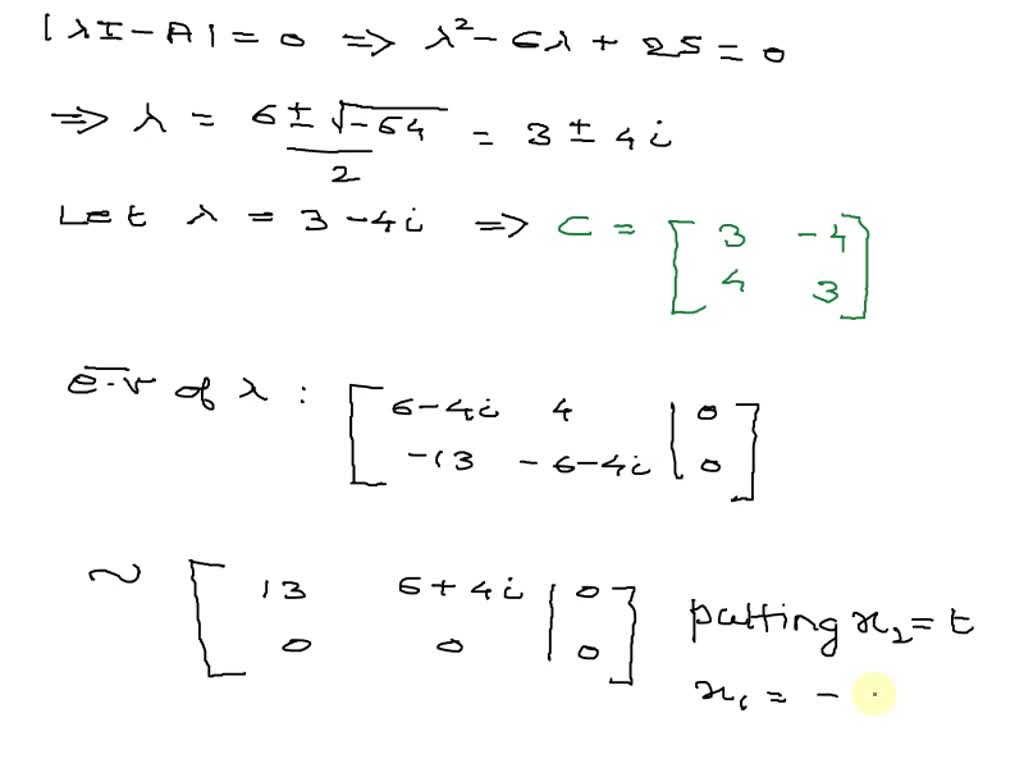 |λI-A| = 0 ⇒ λ² - 6λ + 25 = 0
⇒ λ = (6 ± √-64)/2 = 3 ± 4i
Let λ = 3-4i ⇒ C = [3 -4; 4 3]
e.v of λ : [6-4i 4 | 0; -13 -6-4i | 0]
~ [13 6+4i | 0; 0 0 | 0] putting x₂ = t
x₁ = -